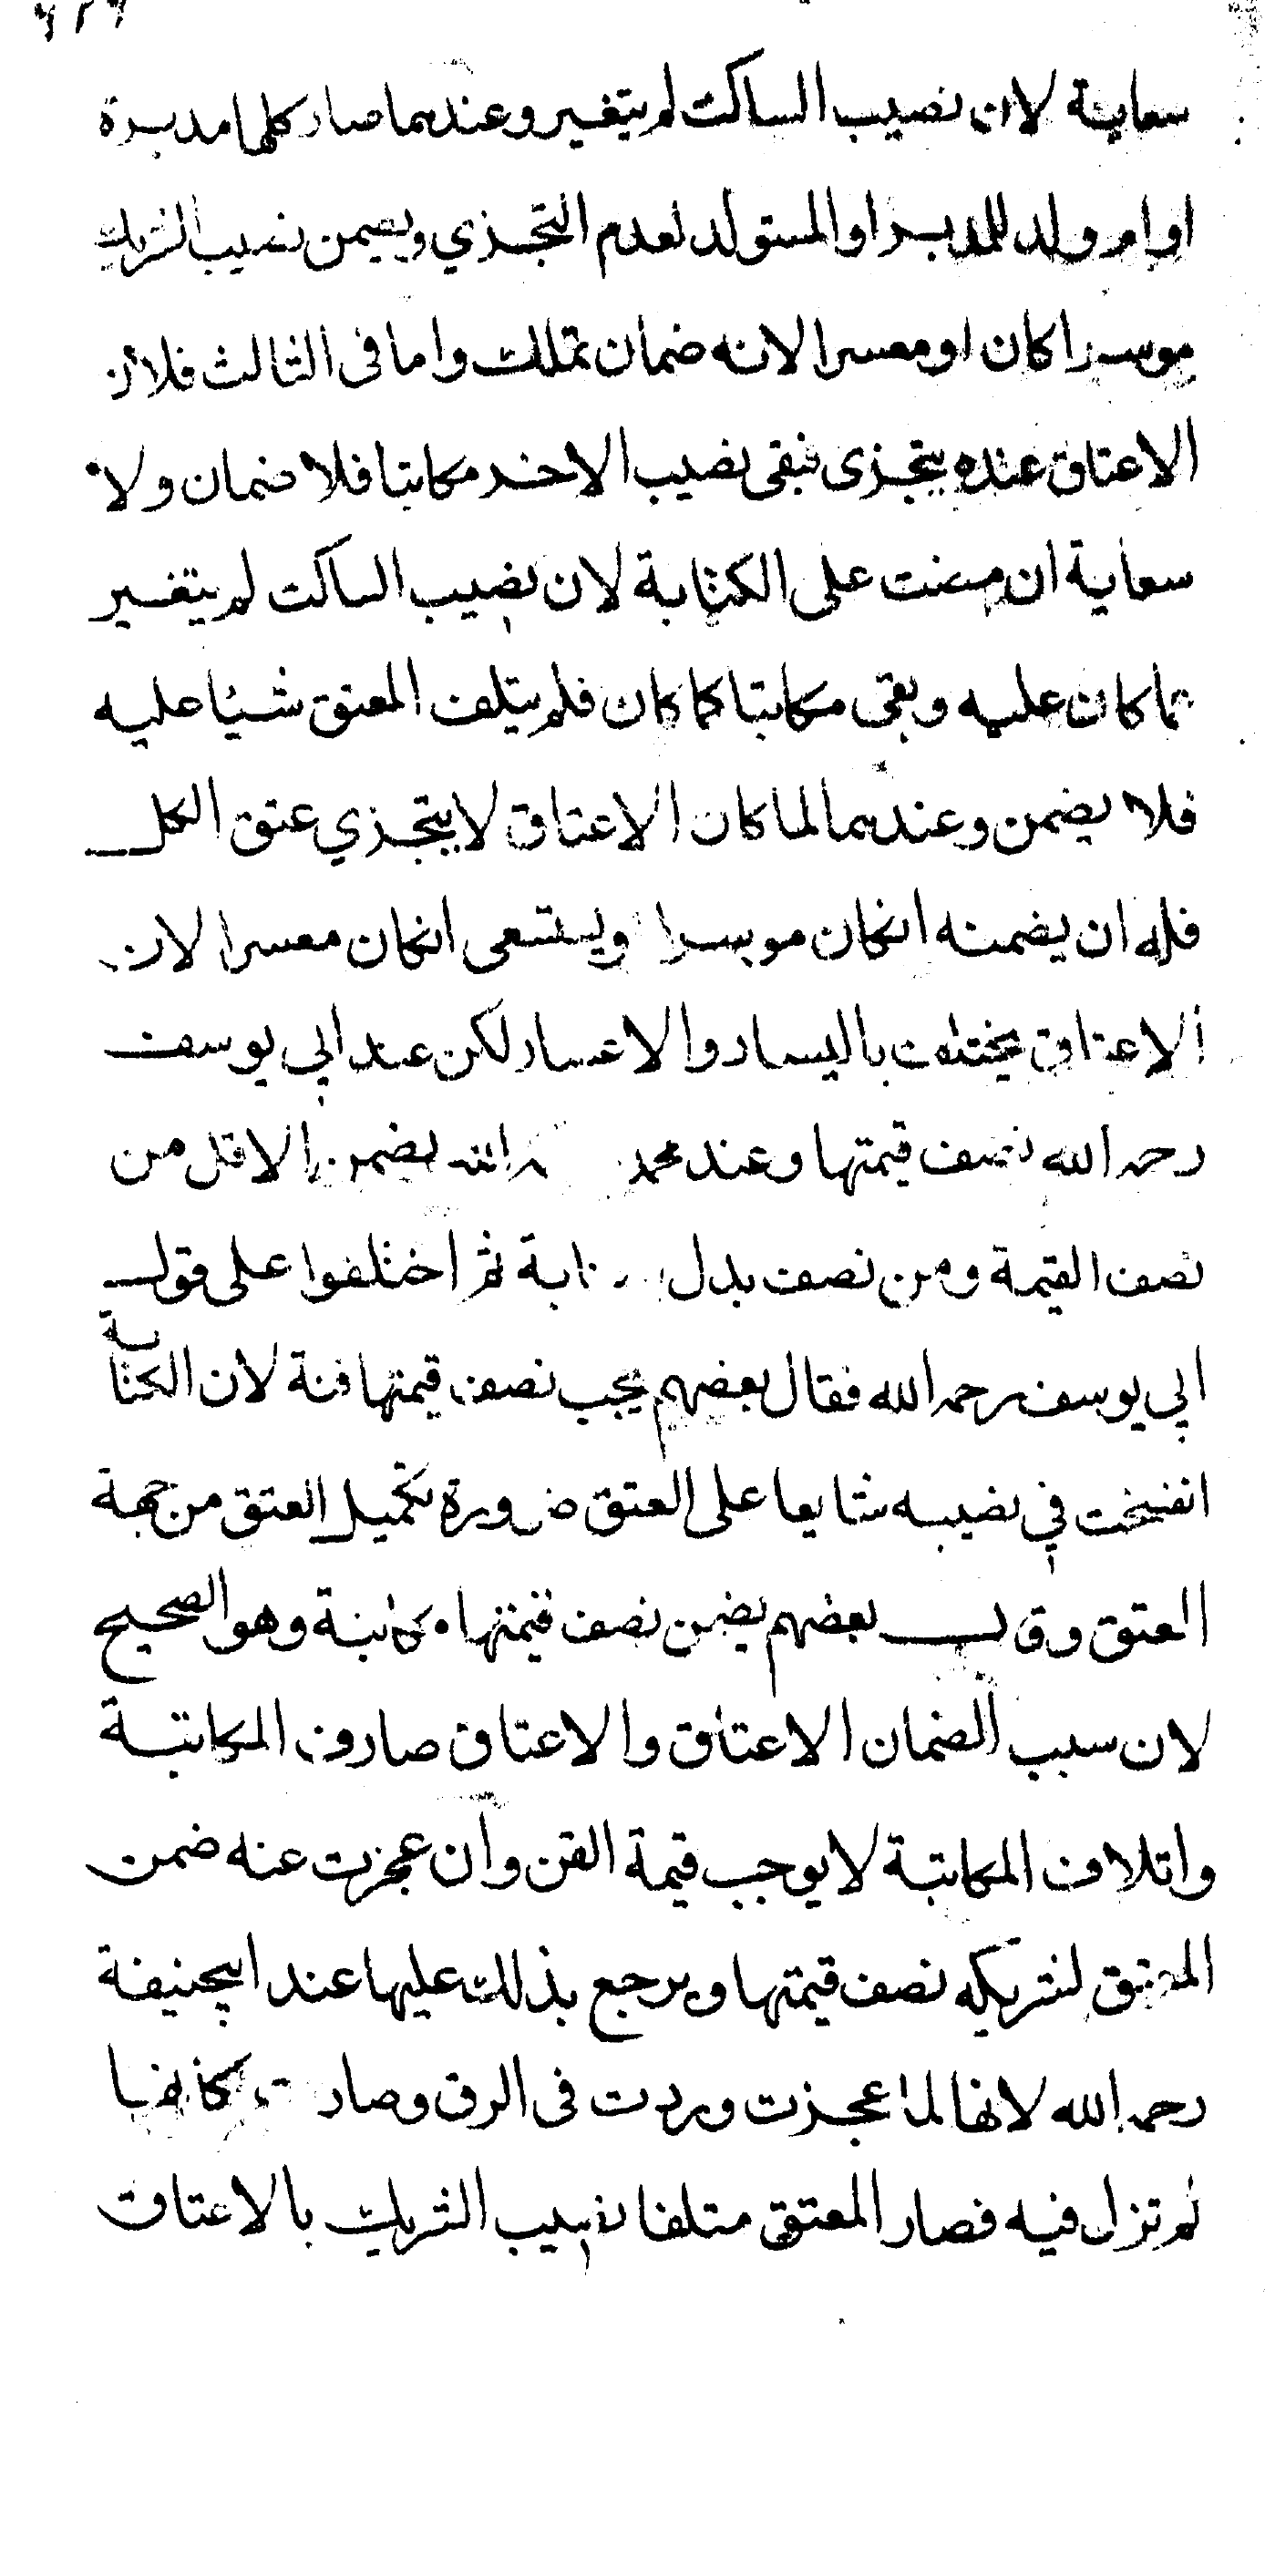 سعاية لان نصيب الساكت لم يتغير وعندهما صار كلها مدبرة
او ام ولد للمدبر او المستولد لعدم التجزي ويضمن نصيب الشريك
موسرا كان او معسرا لانه ضمان تملك واما فى الثالث فلان
الاعتاق عنده يتجزى فبقى نصيب الاخر مكاتبا فلا ضمان ولا
سعاية ان مضت على الكتابة لان نصيب الساكت لم يتغير
عما كان عليه وبقى مكاتبا كما كان فلم يتلف المعتق شيئا عليه
فلا يضمن وعندهما لما كان الاعتاق لا يتجزي عتق الكل
فله ان يضمنه انكان موسرا ويستسعى انكان معسرا لان
الاعتاق يختلف باليسار والاعسار لكن عند ابي يوسف
رحمه الله نصف قيمتها وعند محمد الله يضمن الاقل من
نصف القيمة ومن نصف بدل ثم اختلفوا على قول
ابي يوسف رحمه الله فقال بعضهم يجب نصف قيمتها قنة لان الكتابة
انفسخت في نصيبه شايعا على العتق ضرورة تكميل العتق من جهة
العتق وقال بعضهم يضمن نصف قيمتها مكاتبة وهو الصحيح
لان سبب الضمان الاعتاق والاعتاق صادف المكاتبة
واتلاف المكاتبة لا يوجب قيمة القن وان عجزت عنه ضمن
المعتق لشريكه نصف قيمتها ويرجع بذلك عليها عند ابيحنيفة
رحمه الله لانها لما عجزت وردت فى الرق وصارت كانها
لم تزل فيه فصار المعتق متلفا نصيب الشريك بالاعتاق